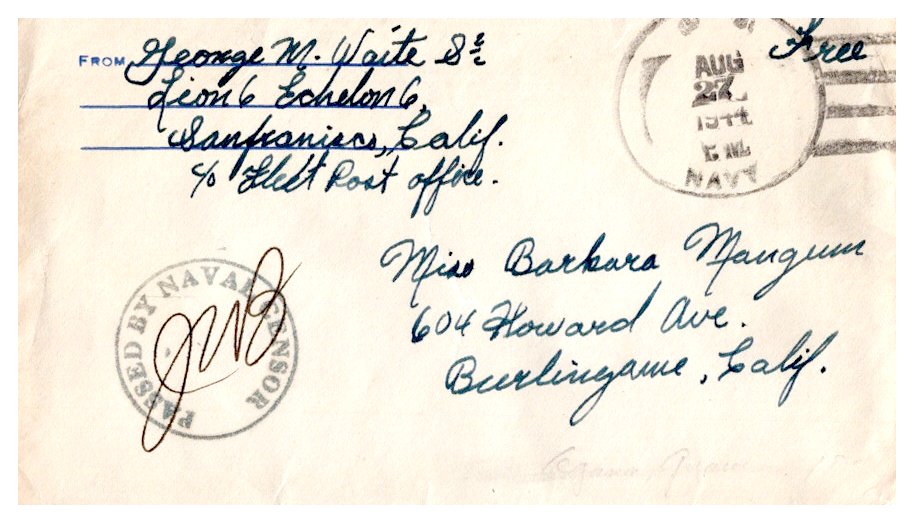 FROM George M. Waite S 2/c
Lion 6 Echelon 6,
Sanfranisco, Calif.
c/o Fleet Post office.
Free
AUG
27
1944
NAVY
PASSED BY NAVAL CENSOR
JWB
Miss Barbara Mangum
604 Howard Ave.
Burlingame, Calif.